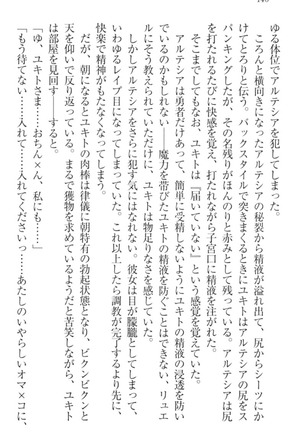 ゆる体位でアルテシアを犯してしまった。
ころんと横向きになったアルテシアの秘裂から精液が溢れ出て、尻からシーツにか
けてとろりと伝う。バックスタイルで突きまくるときにユキトはアルテシアの尻をス
パンキングしたが、その名残りがほんのりと赤みとして残っている。アルテシアは尻
を打たれるたびに快感を覚え、打たれながら子宮口に精液を注がれた。
そこまでしてもなお、ユキトは『届いていない』という感覚を覚えていた。
アルテシアは勇者だけあって、簡単に受精しないようにユキトの精液の浸透を防い
でいるのかもしれない――魔力を帯びたユキトの精液を防ぐことはできないと、リュエ
ルにそう教えられていただけに、ユキトは物足りなさを感じていた。
しかしアルテシアをさらに犯す気にはなれない。彼女は目が朦朧としてしまって、
いわゆるレイプ目になってしまっていた。これ以上したら調教が完了するより先に、
快楽で精神がもたなくなってしまう。
だが、朝になるとユキトの肉棒は律儀に朝特有の勃起状態となり、ビクンビクンと
天を仰いで反り返っている。まるで獲物を求めているようだと苦笑しながら、ユキト
は部屋を見回す――すると。
「ゆ、ユキトさま……おちん×ん、私にも……」
「もう待てない……入れて……入れてくださいっ……あたしのいやらしいオマ×コに、